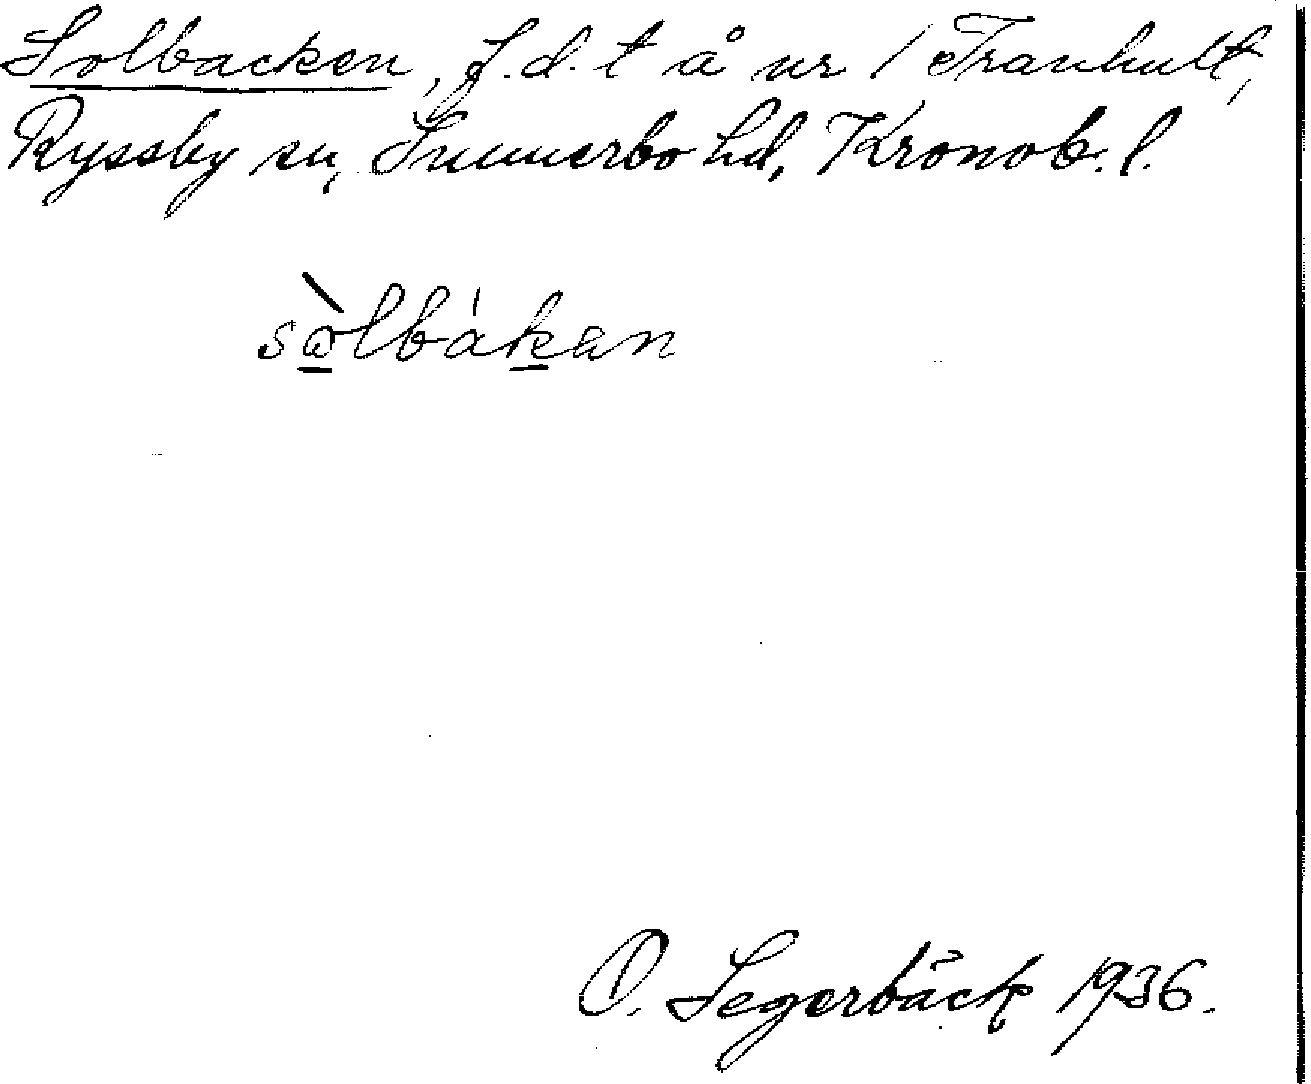 Solbacken, f.d. t å nr 1 Tranhult,
Ryssby sn, Sunnerbo hd, Kronob. l.
sòlbákan
O. Segerbäck 1936.